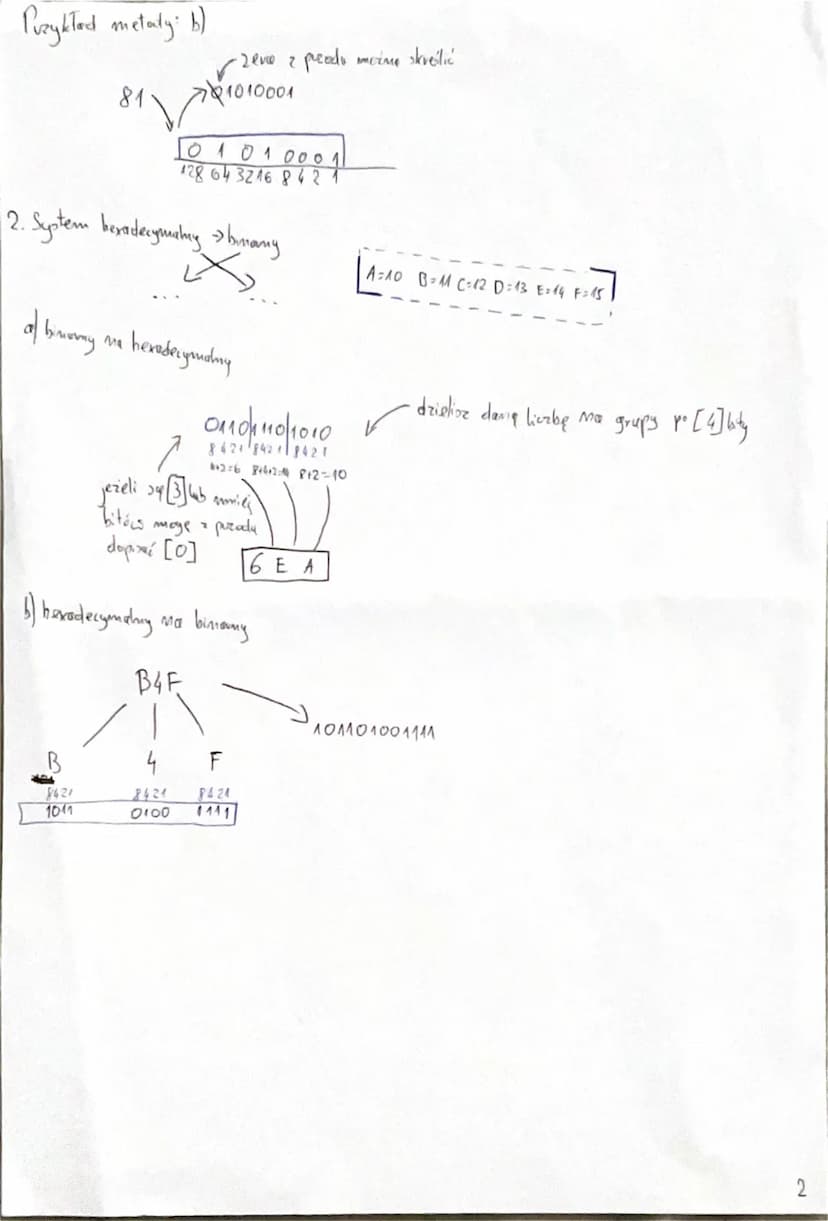 Przykład metody: b)
zera z przodu można skreślić
81
01010001
0 1 0 1 0 0 0 1
128 64 32 16 8 4 2 1
2. System hexadecymalny → binarny
... ...
A=10 B=11 C=12 D=13 E=14 F=15
a) binarny na hexadecymalny
0110|1110|1010
dzielisz daną liczbę na grupy po [4] bity
8421 8421 8421
4+2=6 8+4+2=14 8+2=10
jeżeli są [3] lub mniej
bitów mogę z przodu
dopisać [0]
6 E A
b) hexadecymalny na binarny
B4F
101101001111
B 4 F
8421 8421 8421
1011 0100 1111
2